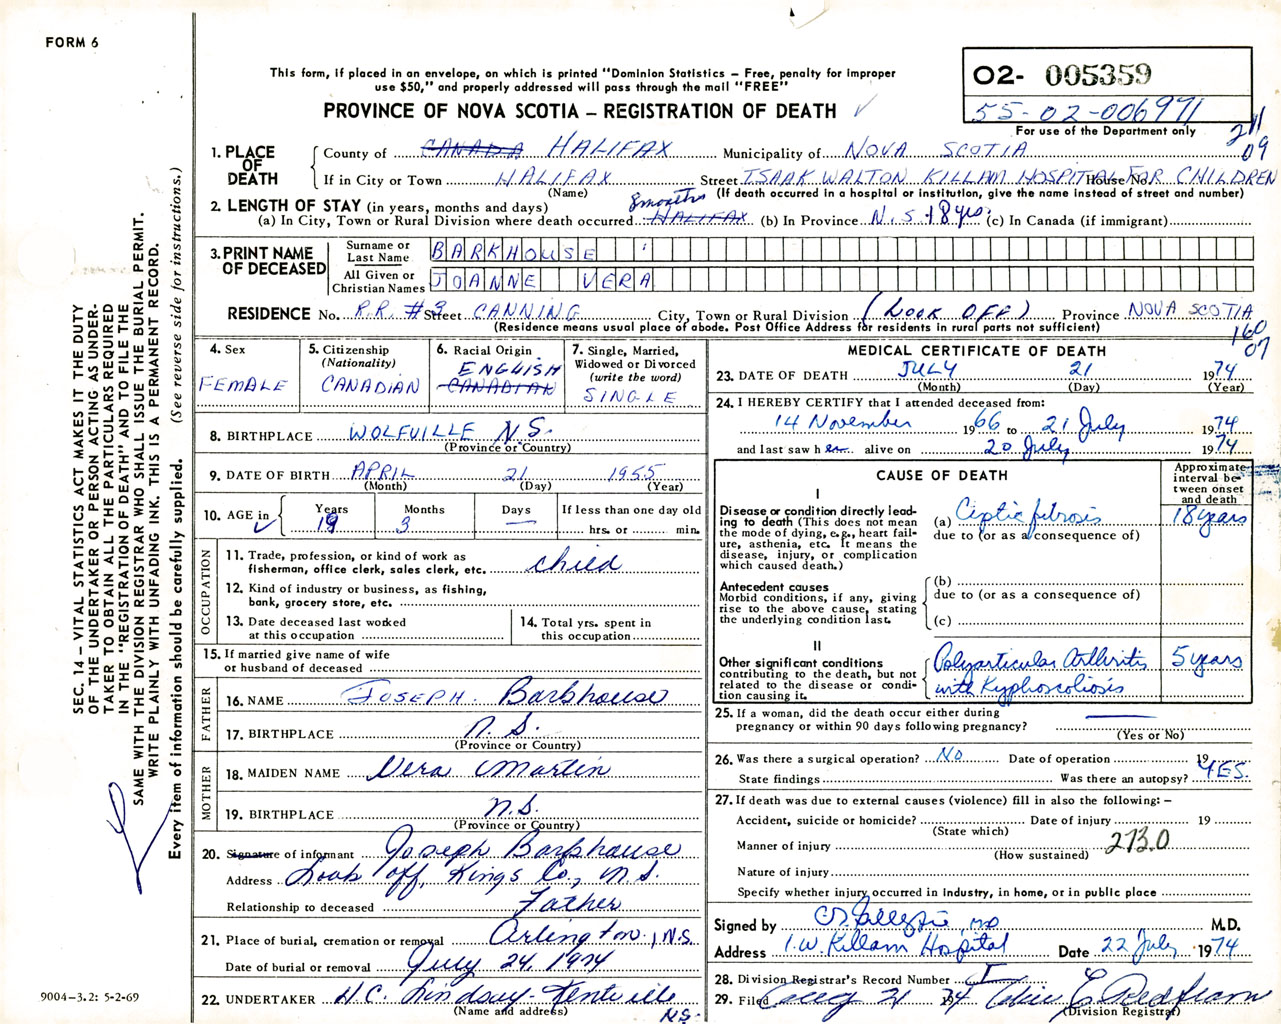 FORM 6
This form, if placed in an envelope, on which is printed "Dominion Statistics – Free, penalty for improper
use $50," and properly addressed will pass through the mail "FREE"
PROVINCE OF NOVA SCOTIA – REGISTRATION OF DEATH
02- 005359
55-02-006971
For use of the Department only
211
09
SEC. 14 – VITAL STATISTICS ACT MAKES IT THE DUTY
OF THE UNDERTAKER OR PERSON ACTING AS UNDER-
TAKER TO OBTAIN ALL THE PARTICULARS REQUIRED
IN THE "REGISTRATION OF DEATH" AND TO FILE THE
SAME WITH THE DIVISION REGISTRAR WHO SHALL ISSUE THE BURIAL PERMIT.
WRITE PLAINLY WITH UNFADING INK. THIS IS A PERMANENT RECORD.
Every item of information should be carefully supplied. (See reverse side for instructions.)
1. PLACE OF DEATH
County of CANADA HALIFAX Municipality of NOVA SCOTIA
If in City or Town HALIFAX Street ISAAK WALTON KILLAM HOSPITAL FOR CHILDREN House No.
(Name) (If death occurred in a hospital or institution, give the name instead of street and number)
2. LENGTH OF STAY (in years, months and days) 8 months
(a) In City, Town or Rural Division where death occurred HALIFAX (b) In Province N.S. 18 yrs. (c) In Canada (if immigrant)
3. PRINT NAME OF DECEASED
Surname or Last Name BARKHOUSE
All Given or Christian Names JOANNE VERA
RESIDENCE No. R.R. #3 Street CANNING City, Town or Rural Division (LOOK OFF) Province NOVA SCOTIA
(Residence means usual place of abode. Post Office Address for residents in rural parts not sufficient)
160
07
4. Sex
FEMALE
5. Citizenship
(Nationality)
CANADIAN
6. Racial Origin
ENGLISH
CANADIAN
7. Single, Married,
Widowed or Divorced
(write the word)
SINGLE
8. BIRTHPLACE WOLFVILLE N.S.
(Province or Country)
9. DATE OF BIRTH APRIL 21 1955
(Month) (Day) (Year)
10. AGE in
Years 19
Months 3
Days —
If less than one day old
hrs. or min.
OCCUPATION
11. Trade, profession, or kind of work as
fisherman, office clerk, sales clerk, etc. child
12. Kind of industry or business, as fishing,
bank, grocery store, etc.
13. Date deceased last worked
at this occupation
14. Total yrs. spent in
this occupation
15. If married give name of wife
or husband of deceased
FATHER
16. NAME JOSEPH. Barkhouse
17. BIRTHPLACE N.S.
(Province or Country)
MOTHER
18. MAIDEN NAME Vera Martin
19. BIRTHPLACE N.S.
(Province or Country)
20. Signature of informant Joseph Barkhouse
Address Look off, Kings Co., N.S.
Relationship to deceased Father
21. Place of burial, cremation or removal Arlington, N.S.
Date of burial or removal July 24, 1974
22. UNDERTAKER H.C. Lindsay - Kentville
(Name and address) N.S.
9004-3.2: 5-2-69
MEDICAL CERTIFICATE OF DEATH
23. DATE OF DEATH JULY 21 1974
(Month) (Day) (Year)
24. I HEREBY CERTIFY that I attended deceased from:
14 November 1966 to 21 July 1974
and last saw her alive on 20 July 1974
CAUSE OF DEATH
Approximate
interval be-
tween onset
and death
I
Disease or condition directly lead-
ing to death (This does not mean
the mode of dying, e.g., heart fail-
ure, asthenia, etc. It means the
disease, injury, or complication
which caused death.)
(a) Cystic fibrosis 18 years
due to (or as a consequence of)
Antecedent causes
Morbid conditions, if any, giving
rise to the above cause, stating
the underlying condition last.
(b)
due to (or as a consequence of)
(c)
II
Other significant conditions
contributing to the death, but not
related to the disease or condi-
tion causing it.
Polyarticular Arthritis 5 years
with Kyphoscoliosis
25. If a woman, did the death occur either during
pregnancy or within 90 days following pregnancy? —
(Yes or No)
26. Was there a surgical operation? No Date of operation 19
State findings Was there an autopsy? YES.
27. If death was due to external causes (violence) fill in also the following: –
Accident, suicide or homicide? Date of injury 19
(State which)
Manner of injury 273.0
(How sustained)
Nature of injury
Specify whether injury occurred in industry, in home, or in public place
Signed by M.D.
Address I.W. Killam Hospital Date 22 July 1974
28. Division Registrar's Record Number
29. Filed Aug 21 1974
(Division Registrar)